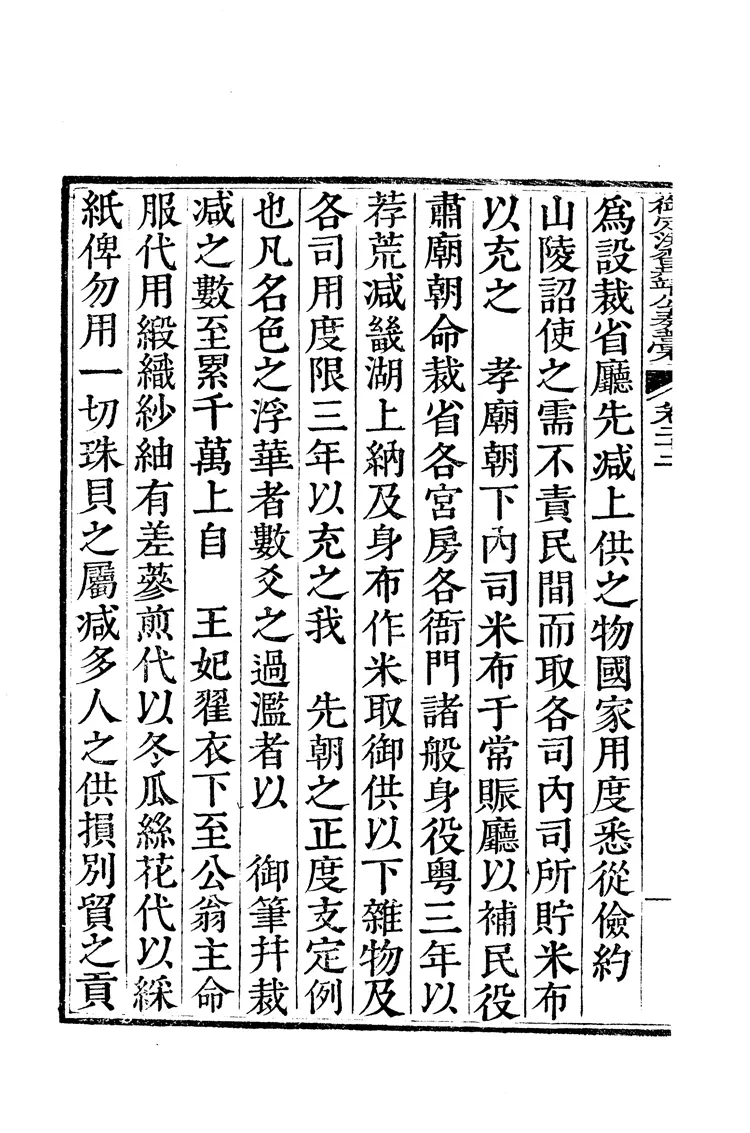 爲設裁省廳先减上供之物國家用度悉從儉約
山陵詔使之需不責民間而取各司內司所貯米布
以充之　孝廟朝下內司米布于常賑廳以補民役
肅廟朝命裁省各宮房各衙門諸般身役粤三年以
荐荒减畿湖上納及身布作米取御供以下雜物及
各司用度限三年以充之我　先朝之正度支定例
也凡名色之浮華者數爻之過濫者以　御筆幷裁
减之數至累千萬上自　王妃翟衣下至公翁主命
服代用緞織紗紬有差蔘煎代以冬瓜絲花代以綵
紙俾勿用一切珠貝之屬减多人之供損別貿之貢